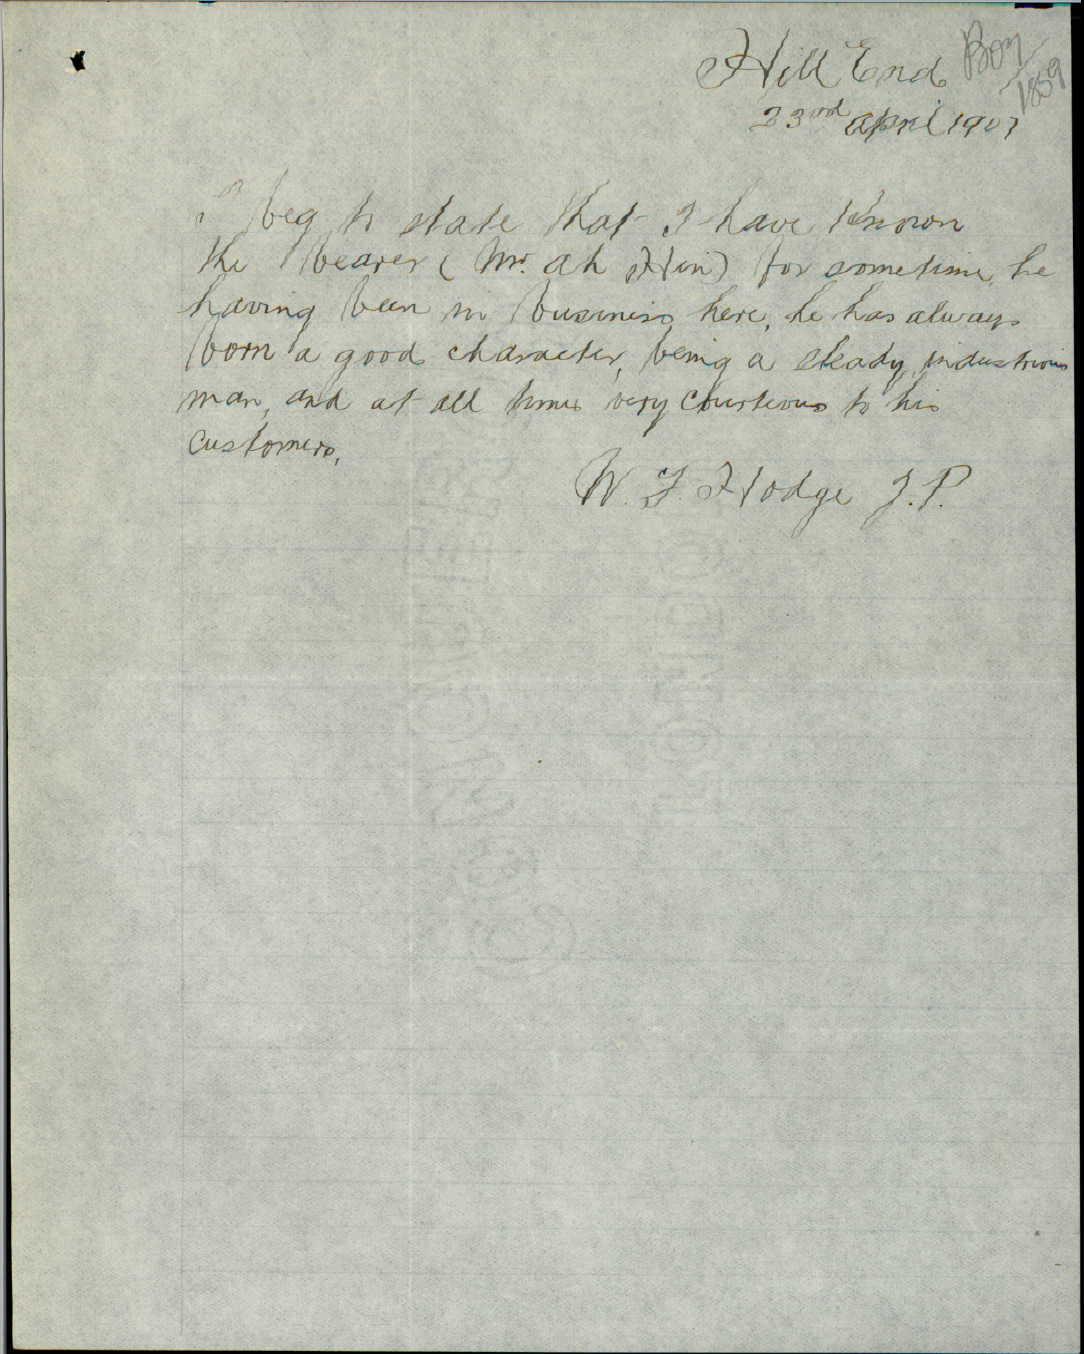 Hill End
23rd April 1907
Boy
1859
I beg to state that I have known
the bearer (Mr. Ah Hin) for sometime, he
having been in business here, he has always
born a good character, being a steady, industrious
man, and at all times very courteous to his
customers,
W. F. Hodge J.P.